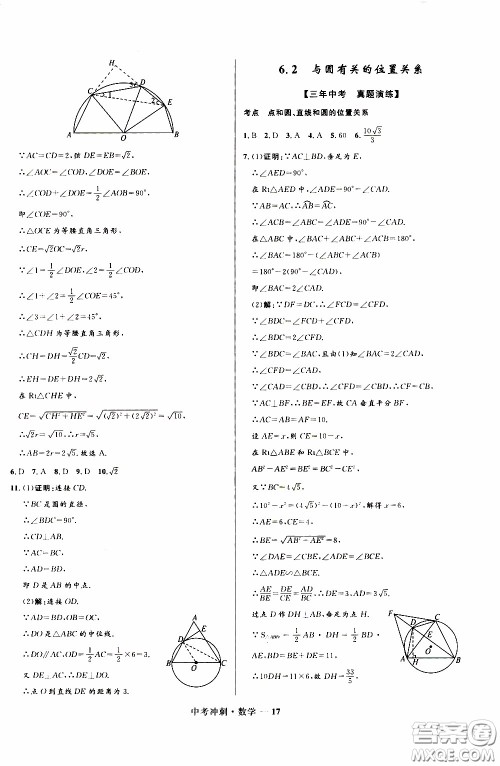 ∵AC=CD=2,弦DE=EB=√2,
∴∠AOC=∠COD,∠DOE=∠BOE,
∴∠COD+∠DOE=1/2∠AOB=90°,
即∠COE=90°,
∴△OCE为等腰直角三角形,
∴CE=√2OC=√2r,
∵∠1=1/2∠DOE,∠2=1/2∠COD,
∴∠1+∠2=1/2∠COE=45°,
∴∠3=∠1+∠2=45°,
∴△CDH为等腰直角三角形,
∴CH=DH=√2/2CD=√2,
∴EH=DH+DE=2√2,
在Rt△CHE中,
CE=√(CH²+HE²)=√((√2)²+(2√2)²)=√10,
∴√2r=√10,∴r=√5,
∴AB=2r=2√5.
6.D 7.A 8.D 9.D 10.√2
11.(1)证明:连接CD.
∵BC是圆的直径,
∴∠BDC=90°,
∴CD⊥AB,
∵AC=BC,
∴AD=BD,
即D是AB的中点.
(2)解:连接OD.
∵AD=BD,OB=OC,
∴DO是△ABC的中位线,
∴DO∥AC,OD=1/2AC=1/2×6=3.
又∵DE⊥AC,∴DE⊥DO,
∴点O到直线DE的距离为3.
6.2 与圆有关的位置关系
【三年中考 真题演练】
考点 点和圆、直线和圆的位置关系
1.B 2.D 3.A 4.A 5.60 6.10√3/3
7.(1)证明:∵AC⊥BD,垂足为E,
∴∠AED=90°,
在Rt△AED中,∠ADE=90°-∠CAD.
∵AB=AC,∴AB=AC,
∴∠ACB=∠ABC=∠ADE=90°-∠CAD.
在△ABC中,∠BAC+∠ABC+∠ACB=180°,
∴∠BAC=180°-(∠ABC+∠ACB)
=180°-2(90°-∠CAD),
即∠BAC=2∠CAD.
(2)解:∵DF=DC,∴∠FCD=∠CFD,
∴∠BDC=∠FCD+∠CFD=2∠CFD.
∵∠BDC=∠BAC,且由(1)知∠BAC=2∠CAD,
∴∠CFD=∠CAD.
∵∠CAD=∠CBD,∴∠CFD=∠CBD,
∴CF=CB.
∵AC⊥BF,∴BE=EF,故CA垂直平分BF,
∴AC=AB=AF=10.
设AE=x,则CE=10-x,
在Rt△ABE和Rt△BCE中,
AB²-AE²=BE²=BC²-CE²,
又∵BC=4√5,
∴10²-x²=(4√5)²-(10-x)²,解得x=6,
∴AE=6,CE=4,
∴BE=√(AB²-AE²)=8.
∵∠DAE=∠CBE,∠ADE=∠BCE,
∴△ADE∽△BCE,
∴AE/BE=DE/CE=AD/BC,∴DE=3,AD=3√5.
过点D作DH⊥AB,垂足为H.
=1/2AB·DH=1/2BD·AE,
∴10DH=11×6,故DH=33/5
中考冲刺·数学—17